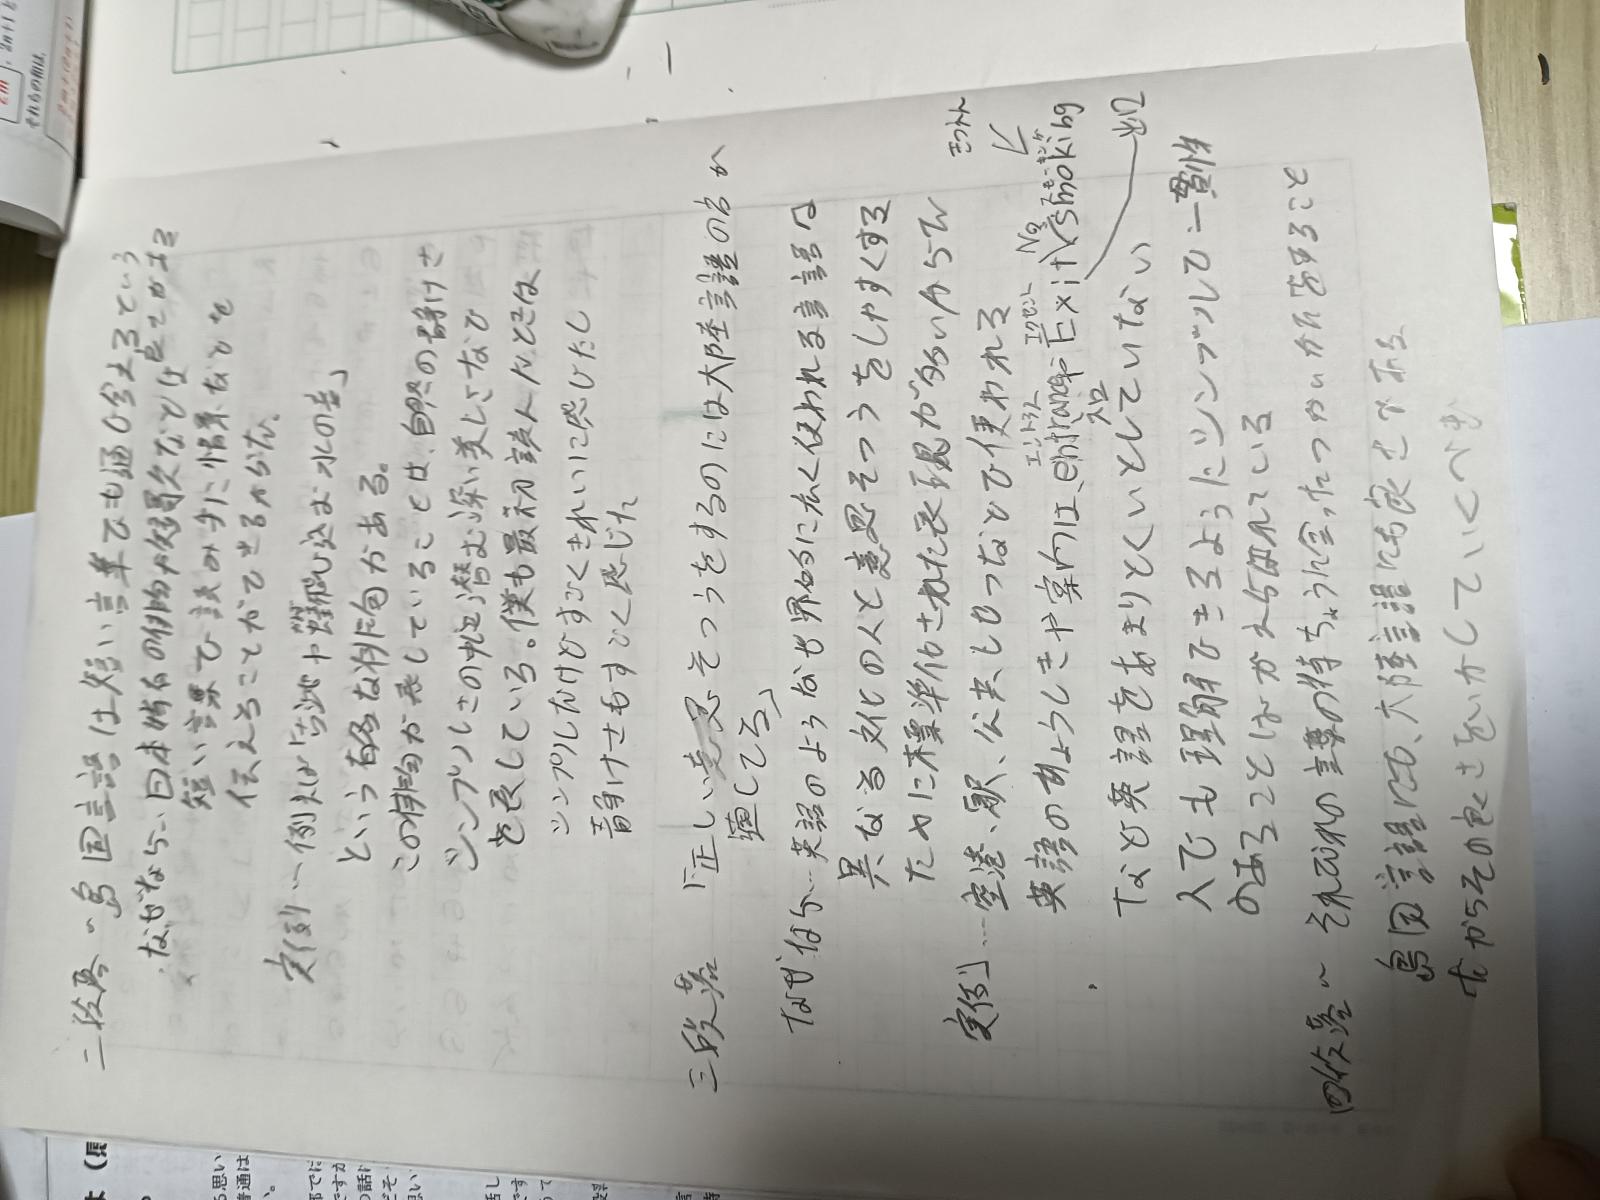 二段落…島国言語は短い言葉でも通じ合えるという
なぜなら…日本特有の俳句や短歌などは良さがある
短い言葉で読み手に情景などを
伝えることができるからだ。
実例…例えば「古池や蛙飛び込む水の音」
かわず
という有名な俳句がある。
この俳句が表していることは、自然の静けさ
シンプルさの中に潜む深い美しさなど
を表している。僕も最初読んだときは
シンプルだけどすごくきれいに感じたし
静けさもすごく感じた
三段落 「正しい意思そつうをするのには大陸言語の方が
適してる」
なぜなら…英語のような世界的に広く使われる言語は
異なる文化の人と意思そつうをしやすくする
ために標準化された表現が多いからで
実例…空港、駅、公共しせつなどで使われる
英語のひょうしきや案内は、entrance Exit No smoking
エントランス
エグジット
スモーキング
きつえん
入口
出口
など英語をあまりとくいとしていない
人でも理解できるようにシンプルで一貫性
のあることばが使われている
四段落…それぞれの言葉の特ちょうに合ったつかい方をすること
島国言語にも、大陸言語にも良さである
だからその良さをいかしていくべき